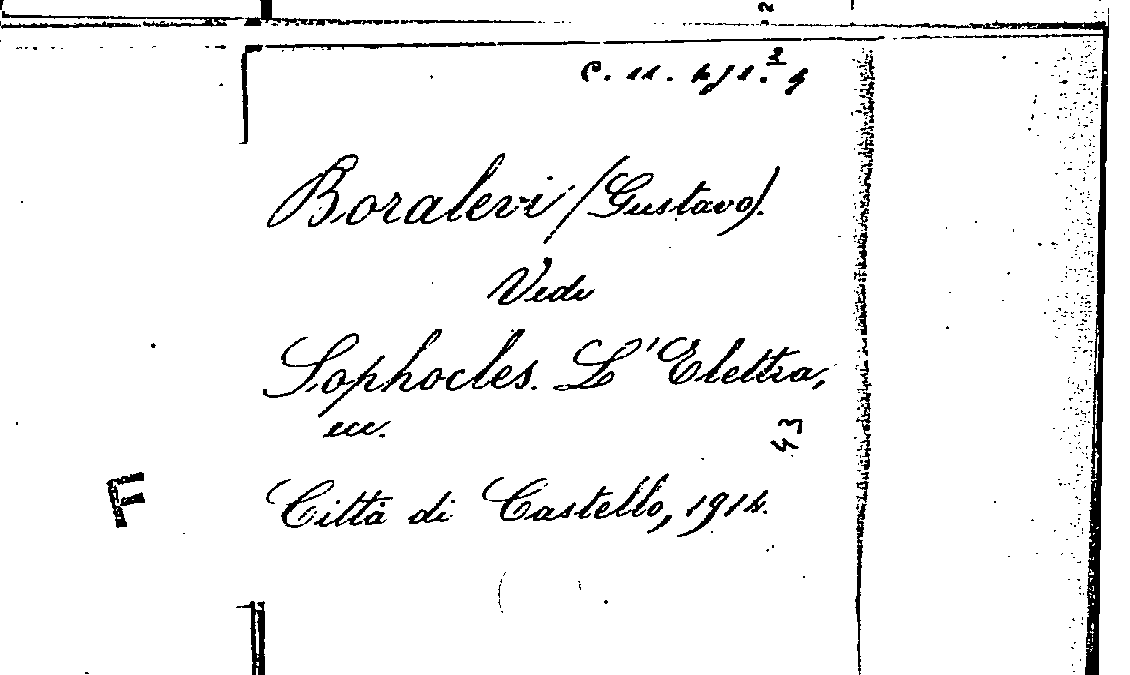 Boralevi (Gustavo).
Vedi
Sophocles. L'Elettra,
ecc.
43
Città di Castello, 1914.
F